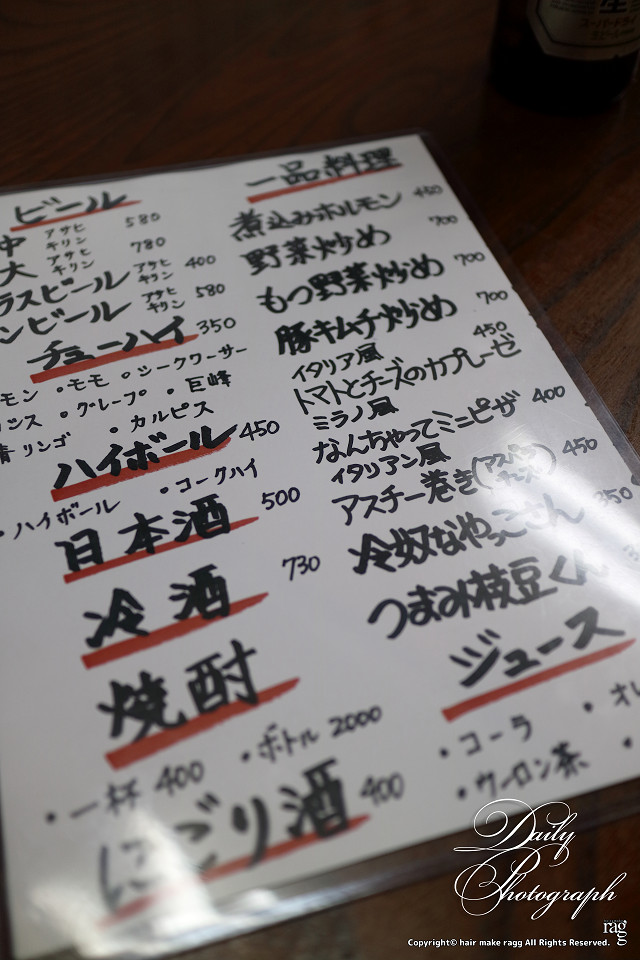 ビール
中 アサヒ キリン 580
大 アサヒ キリン 780
ラスビール アサヒ キリン 400
ンビール アサヒ キリン 580
チューハイ 350
モン ・モモ ・シークワーサー
・グレープ ・巨峰
リンゴ ・カルピス
ハイボール 450
・ハイボール ・コークハイ
日本酒 500
冷酒 730
焼酎
・一杯 400 ・ボトル 2000
にごり酒 400
一品料理
煮込みホルモン 450
野菜炒め 700
もつ野菜炒め 700
豚キムチ炒め 700
イタリア風 450
トマトとチーズのカプレーゼ
ミラノ風
なんちゃってミニピザ 400
イタリアン風
アスチー巻き(アスパラ チーズ) 450
冷奴なやっこさん 350
つまみ枝豆くん
ジュース
・コーラ ・オレ
・ウーロン茶
Daily
Photograph
ragg
Copyright© hair make ragg All Rights Reserved.